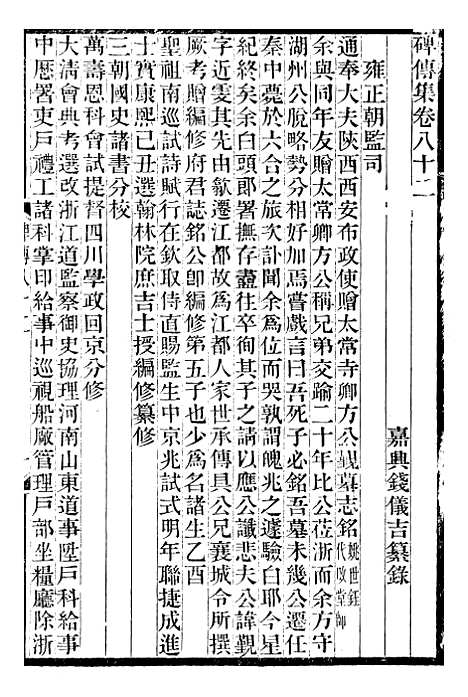 碑傳集卷八十二
嘉興錢儀吉纂錄
雍正朝監司
通奉大夫陝西西安布政使贈太常寺卿方公覲墓志銘 姚世鈺代改堂御
余與同年友贈太常卿方公稱兄弟交踰二十年比公莅浙而余方守
湖州公脫略勢分相好加焉嘗戲言曰吾死子必銘吾墓未幾公遷任
秦中薨於六合之旅次訃聞余爲位而哭孰謂魄兆之遽驗白耶今星
紀終矣余白頭郎署撫存藎往卒徇其子之請以應公讖悲夫公諱覲
字近雯其先由歙遷江都故爲江都人家世承傳具公兄襄城令所撰
厥考贈編修府君誌銘公卽編修第五子也少爲名諸生乙酉
聖祖南巡試詩賦行在欽取侍直賜監生中京兆試式明年聯捷成進
士實康熙己丑選翰林院庶吉士授編修纂修
三朝國史諸書分校
萬壽恩科會試提督四川學政回京分修
大淸會典考選改浙江道監察御史協理河南山東道事陞戶科給事
中歷署吏戶禮工諸科掌印給事中巡視船廠管理戶部坐糧廳除浙